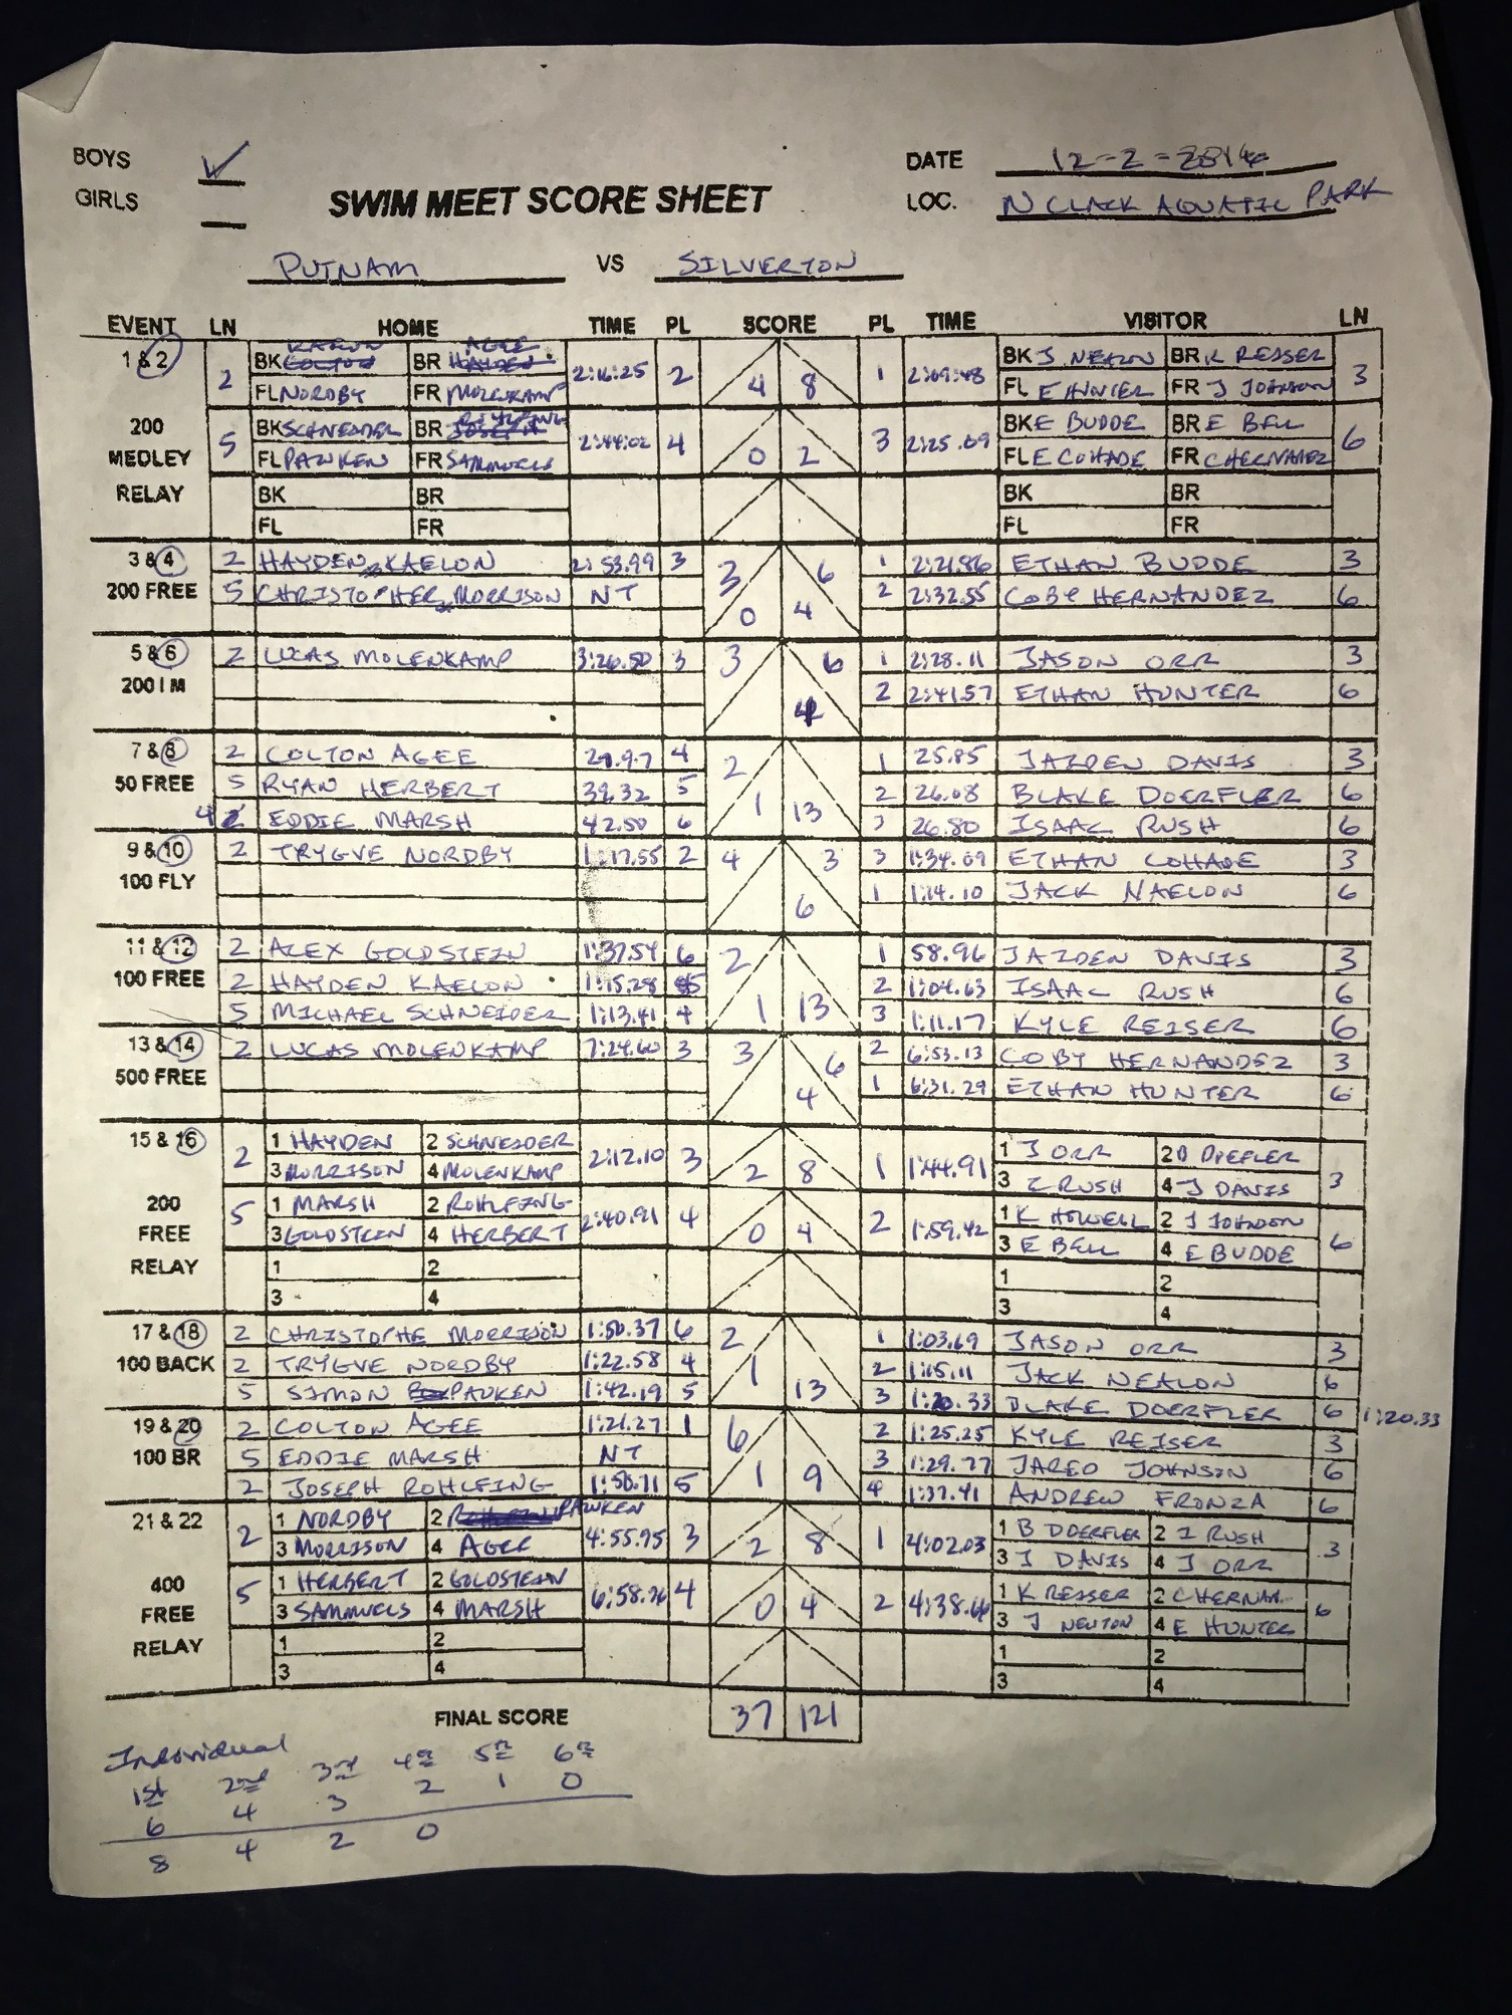 BOYS ✓ DATE 12-2-2016
GIRLS SWIM MEET SCORE SHEET LOC. N CLACK AQUATIC PARK
PUTNAM VS SILVERTON
EVENT LN HOME TIME PL SCORE PL TIME VISITOR LN
1 & 2 2 BK KAELON BR AGEE 2:16:25 2 4 8 1 2:09:48 BK J NEALON BR K REISER 3
FL NORDBY FR MOLENKAMP FL E HUNTER FR J JOHNSON
200 5 BK SCHNEIDER BR ROHLFING 2:44:02 4 0 2 3 2:25.09 BK E BUDDE BR E BELL 6
MEDLEY FL PAUKEN FR SAMMUELS FL E COHADE FR C HERNANDEZ
RELAY BK BR BK BR
FL FR FL FR
3 & 4 2 HAYDEN KAELON 2:53.99 3 3 6 1 2:21.86 ETHAN BUDDE 3
200 FREE 5 CHRISTOPHER MORRISON NT 0 4 2 2:32.55 COBY HERNANDEZ 6
5 & 6 2 LUCAS MOLENKAMP 3:26.50 3 3 6 1 2:28.11 JASON ORR 3
200 I M 4 2 2:41.57 ETHAN HUNTER 6
7 & 8 2 COLTON AGEE 29.97 4 2 1 25.85 JAIDEN DAVIS 3
50 FREE 5 RYAN HERBERT 39.32 5 1 13 2 26.08 BLAKE DOERFLER 6
4 EDDIE MARSH 42.50 6 3 26.80 ISAAC RUSH 6
9 & 10 2 TRYGVE NORDBY 1:17.55 2 4 3 3 1:34.09 ETHAN COHADE 3
100 FLY 6 1 1:14.10 JACK NAELON 6
11 & 12 2 ALEX GOLDSTEIN 1:37.54 6 2 1 58.96 JAIDEN DAVIS 3
100 FREE 2 HAYDEN KAELON 1:15.28 5 2 1:04.63 ISAAC RUSH 6
5 MICHAEL SCHNEIDER 1:13.41 4 1 13 3 1:11.17 KYLE REISER 6
13 & 14 2 LUCAS MOLENKAMP 7:24.60 3 3 6 2 6:53.13 COBY HERNANDEZ 3
500 FREE 4 1 6:31.29 ETHAN HUNTER 6
15 & 16 2 1 HAYDEN 2 SCHNEIDER 2:12.10 3 2 8 1 1:44.91 1 J ORR 2 B DOEFLER 3
3 MORRISON 4 MOLENKAMP 3 I RUSH 4 J DAVIS
200 5 1 MARSH 2 ROHLFING 2:40.91 4 0 4 2 1:59.42 1 K HOWELL 2 J JOHNSON 6
FREE 3 GOLDSTEIN 4 HERBERT 3 E BELL 4 E BUDDE
RELAY 1 2 1 2
3 4 3 4
17 & 18 2 CHRISTOPHE MORRISON 1:50.37 6 2 1 1:03.69 JASON ORR 3
100 BACK 2 TRYGVE NORDBY 1:22.58 4 1 2 1:15.11 JACK NEALON 6
5 SIMON PAUKEN 1:42.19 5 13 3 1:20.33 BLAKE DOERFLER 6 1:20.33
19 & 20 2 COLTON AGEE 1:21.27 1 6 2 1:25.25 KYLE REISER 3
100 BR 5 EDDIE MARSH NT 3 1:29.77 JARED JOHNSON 6
2 JOSEPH ROHLFING 1:50.71 5 1 9 4 1:37.41 ANDREW FRONZA 6
21 & 22 2 1 NORDBY 2 PAUKEN 4:55.95 3 2 8 1 4:02.03 1 B DOERFLER 2 I RUSH 3
3 MORRISON 4 AGEE 3 J DAVIS 4 J ORR
400 5 1 HERBERT 2 GOLDSTEIN 6:58.76 4 0 4 2 4:38.66 1 K REISER 2 C HERNAN. 6
FREE 3 SAMMUELS 4 MARSH 3 J NEWTON 4 E HUNTER
RELAY 1 2 1 2
3 4 3 4
FINAL SCORE 37 121
Individual
1st 2nd 3rd 4th 5th 6th
6 4 3 2 1 0
8 4 2 0